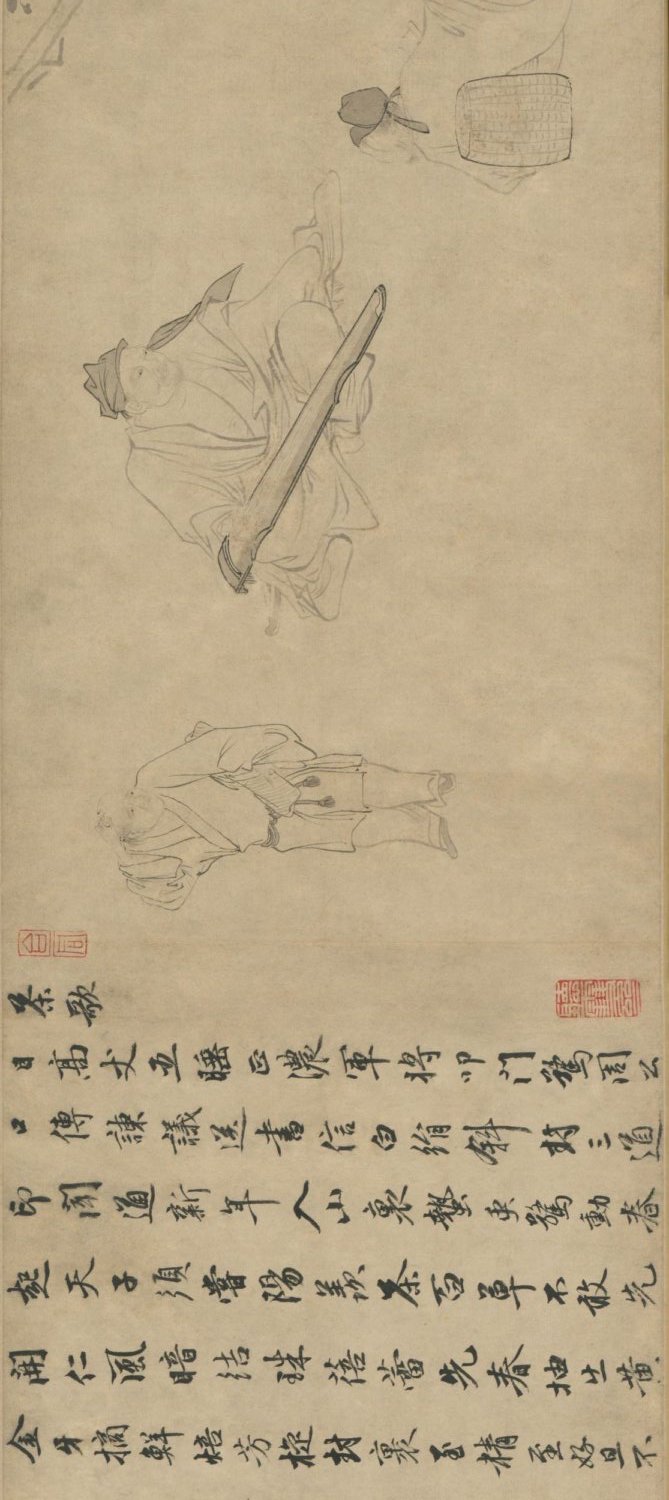 茶歌
日高丈五睡正濃軍將叩門驚周公
口傳諫議送書信白絹斜封三道
印聞道新年入山裏蟄虫驚動春
起天子須嘗陽羨茶百草不敢先
開仁風暗結珠蓓蕾先春抽出黃
金牙摘鮮焙芳旋封裹至精至好且不